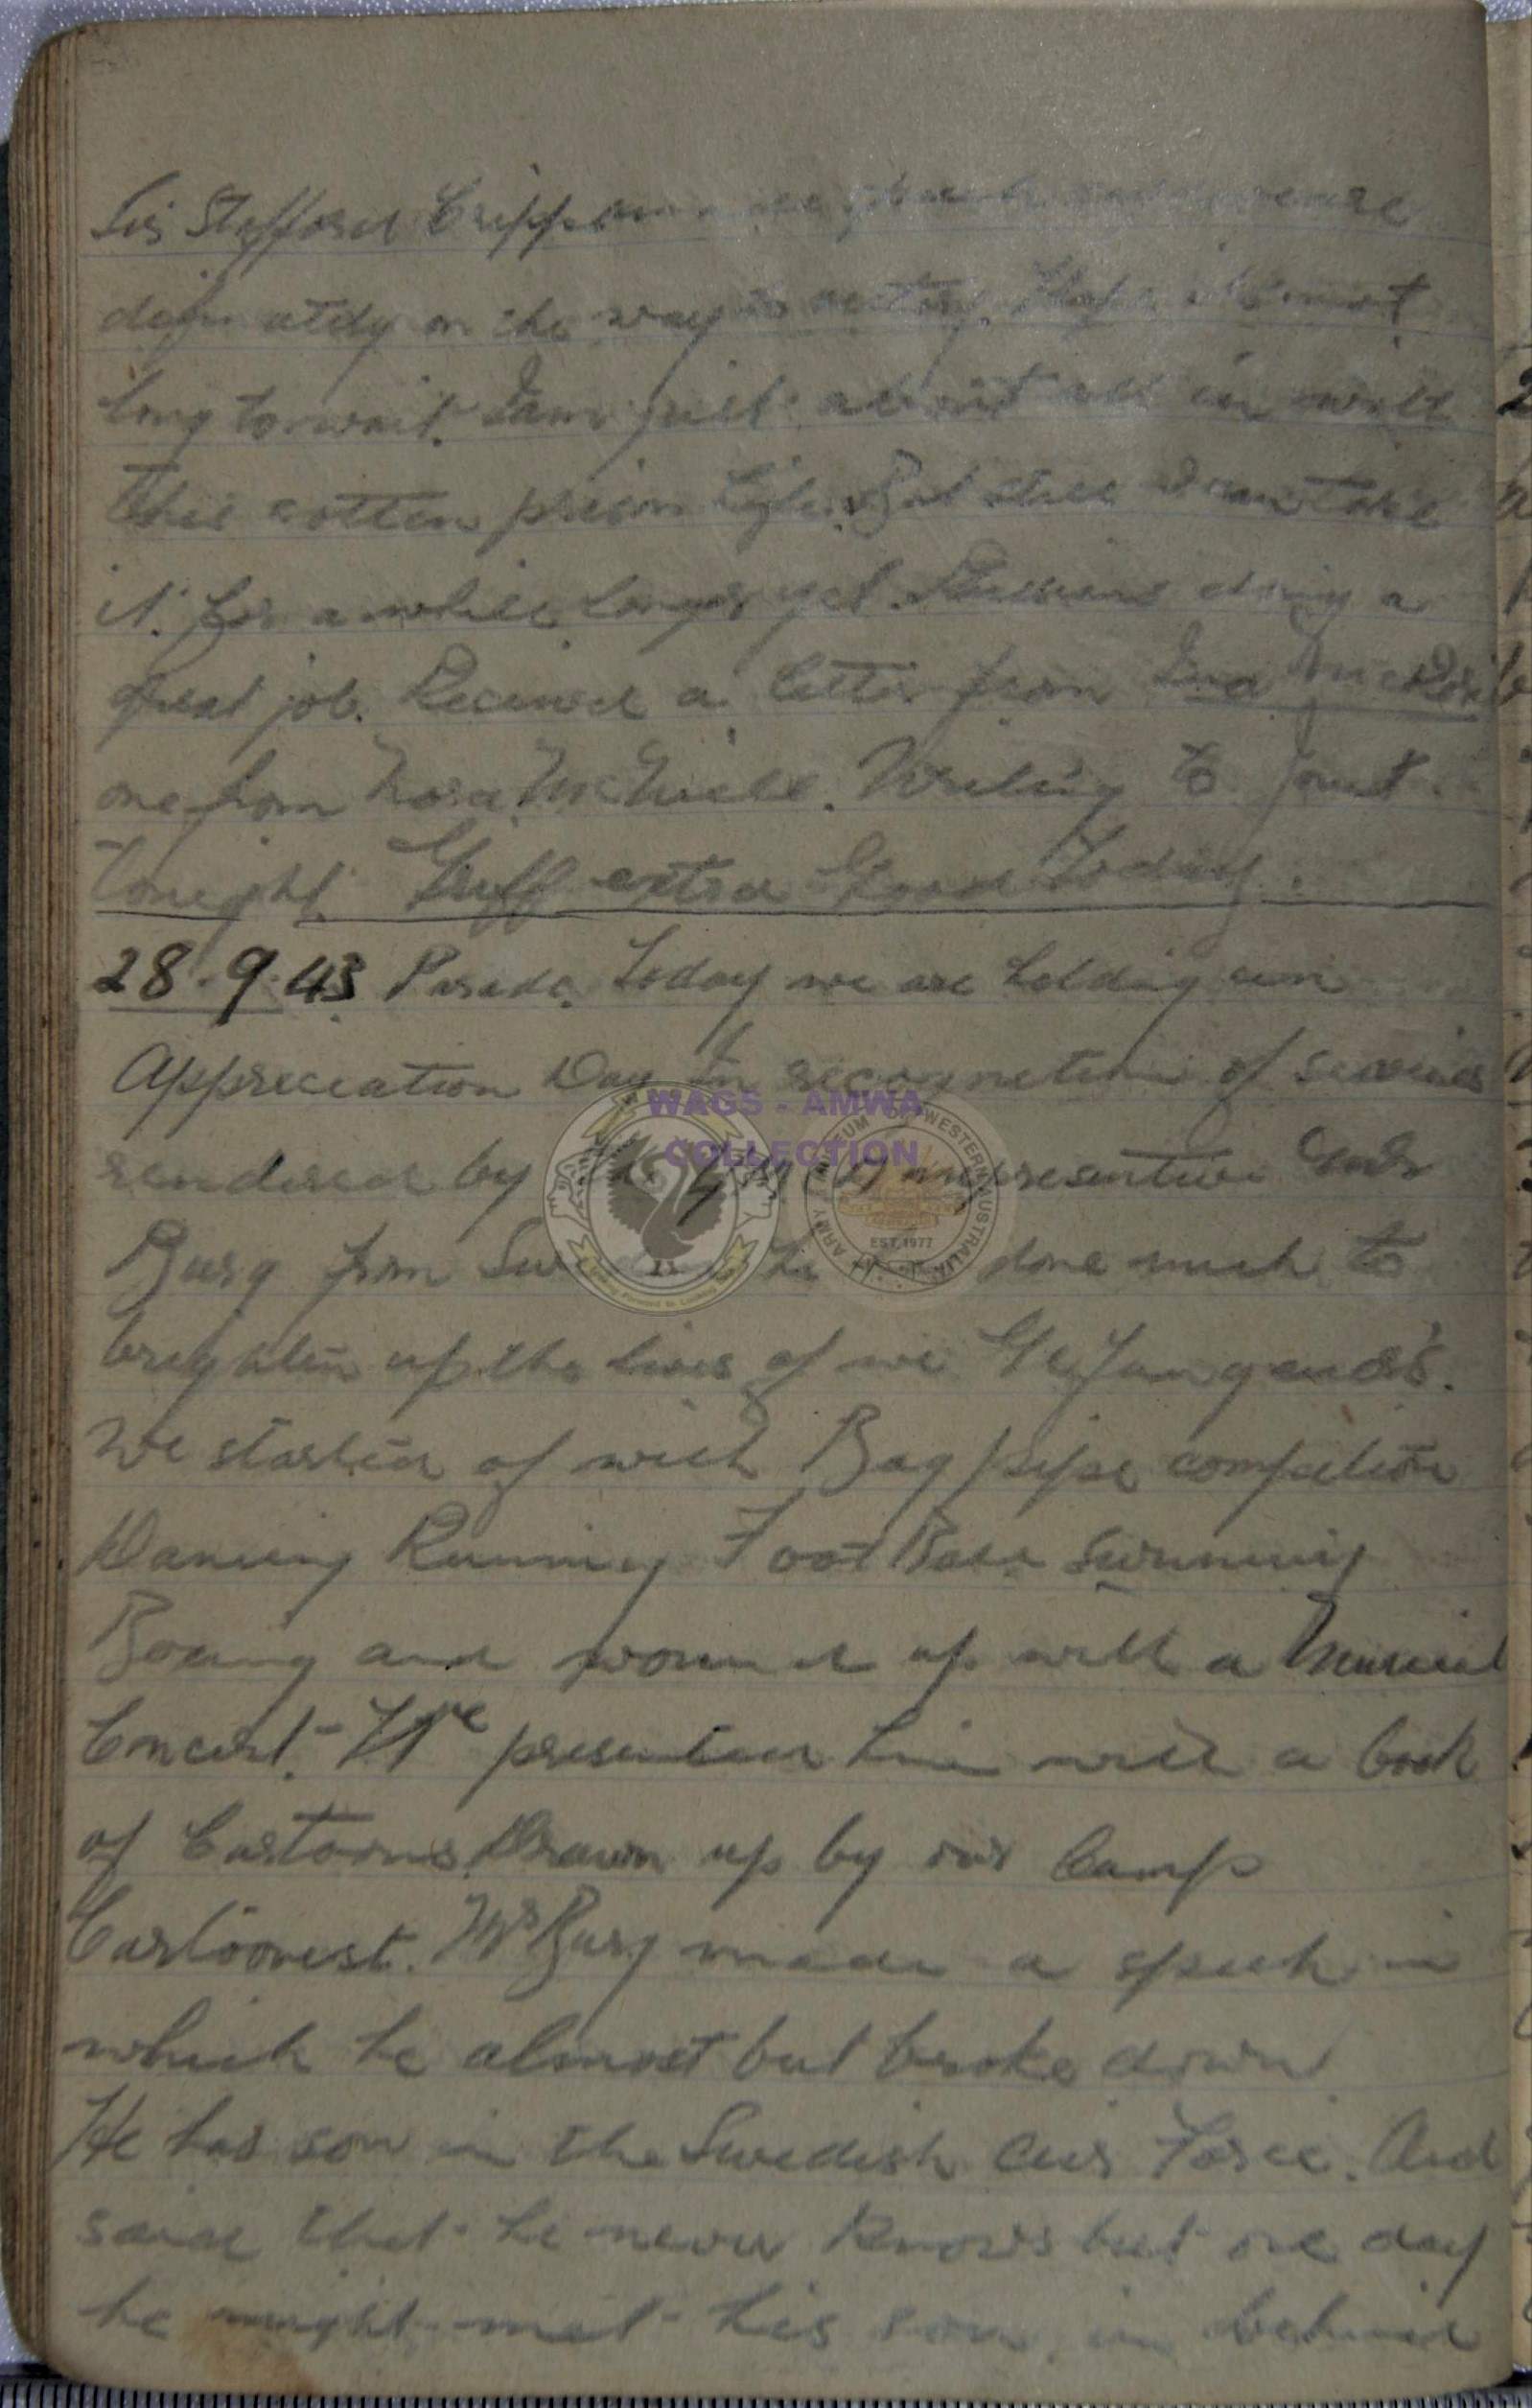 Sir Stafford Cripps we are
definatdy on the way to victory. Hope it's not
long to wait. I am just about all in with
this rotten prison life. But still I can take
it. for a while longer yet. Russians doing a
great job. Received a letter from Ina
one from Nora McNeill. Writing to Janet
tonight. Griff extra Good Today.
28.9.43 Parade. Today we are holding an
Appreciation Day in recognetion of services
rendered by the Y.M.C.A. representive
Burg from Swe he done much to
brighten up the lives of we Gefangener's.
We started of with Bag pipe compition
Dancing Running Foot Ball Swimming
Boxing and wound up with a Musical
Concert. We presented him with a book
of Cartoons Drawn up by our Camp
Cartoonist. Mr Burg made a speech in
which he almost but broke down
He has son in the Swedish Air Force. And
said that he never knows but one day
he might met his son in behind
WAGS - AMWA
COLLECTION
ARMY MUSEUM OF WESTERN AUSTRALIA
EST. 1977